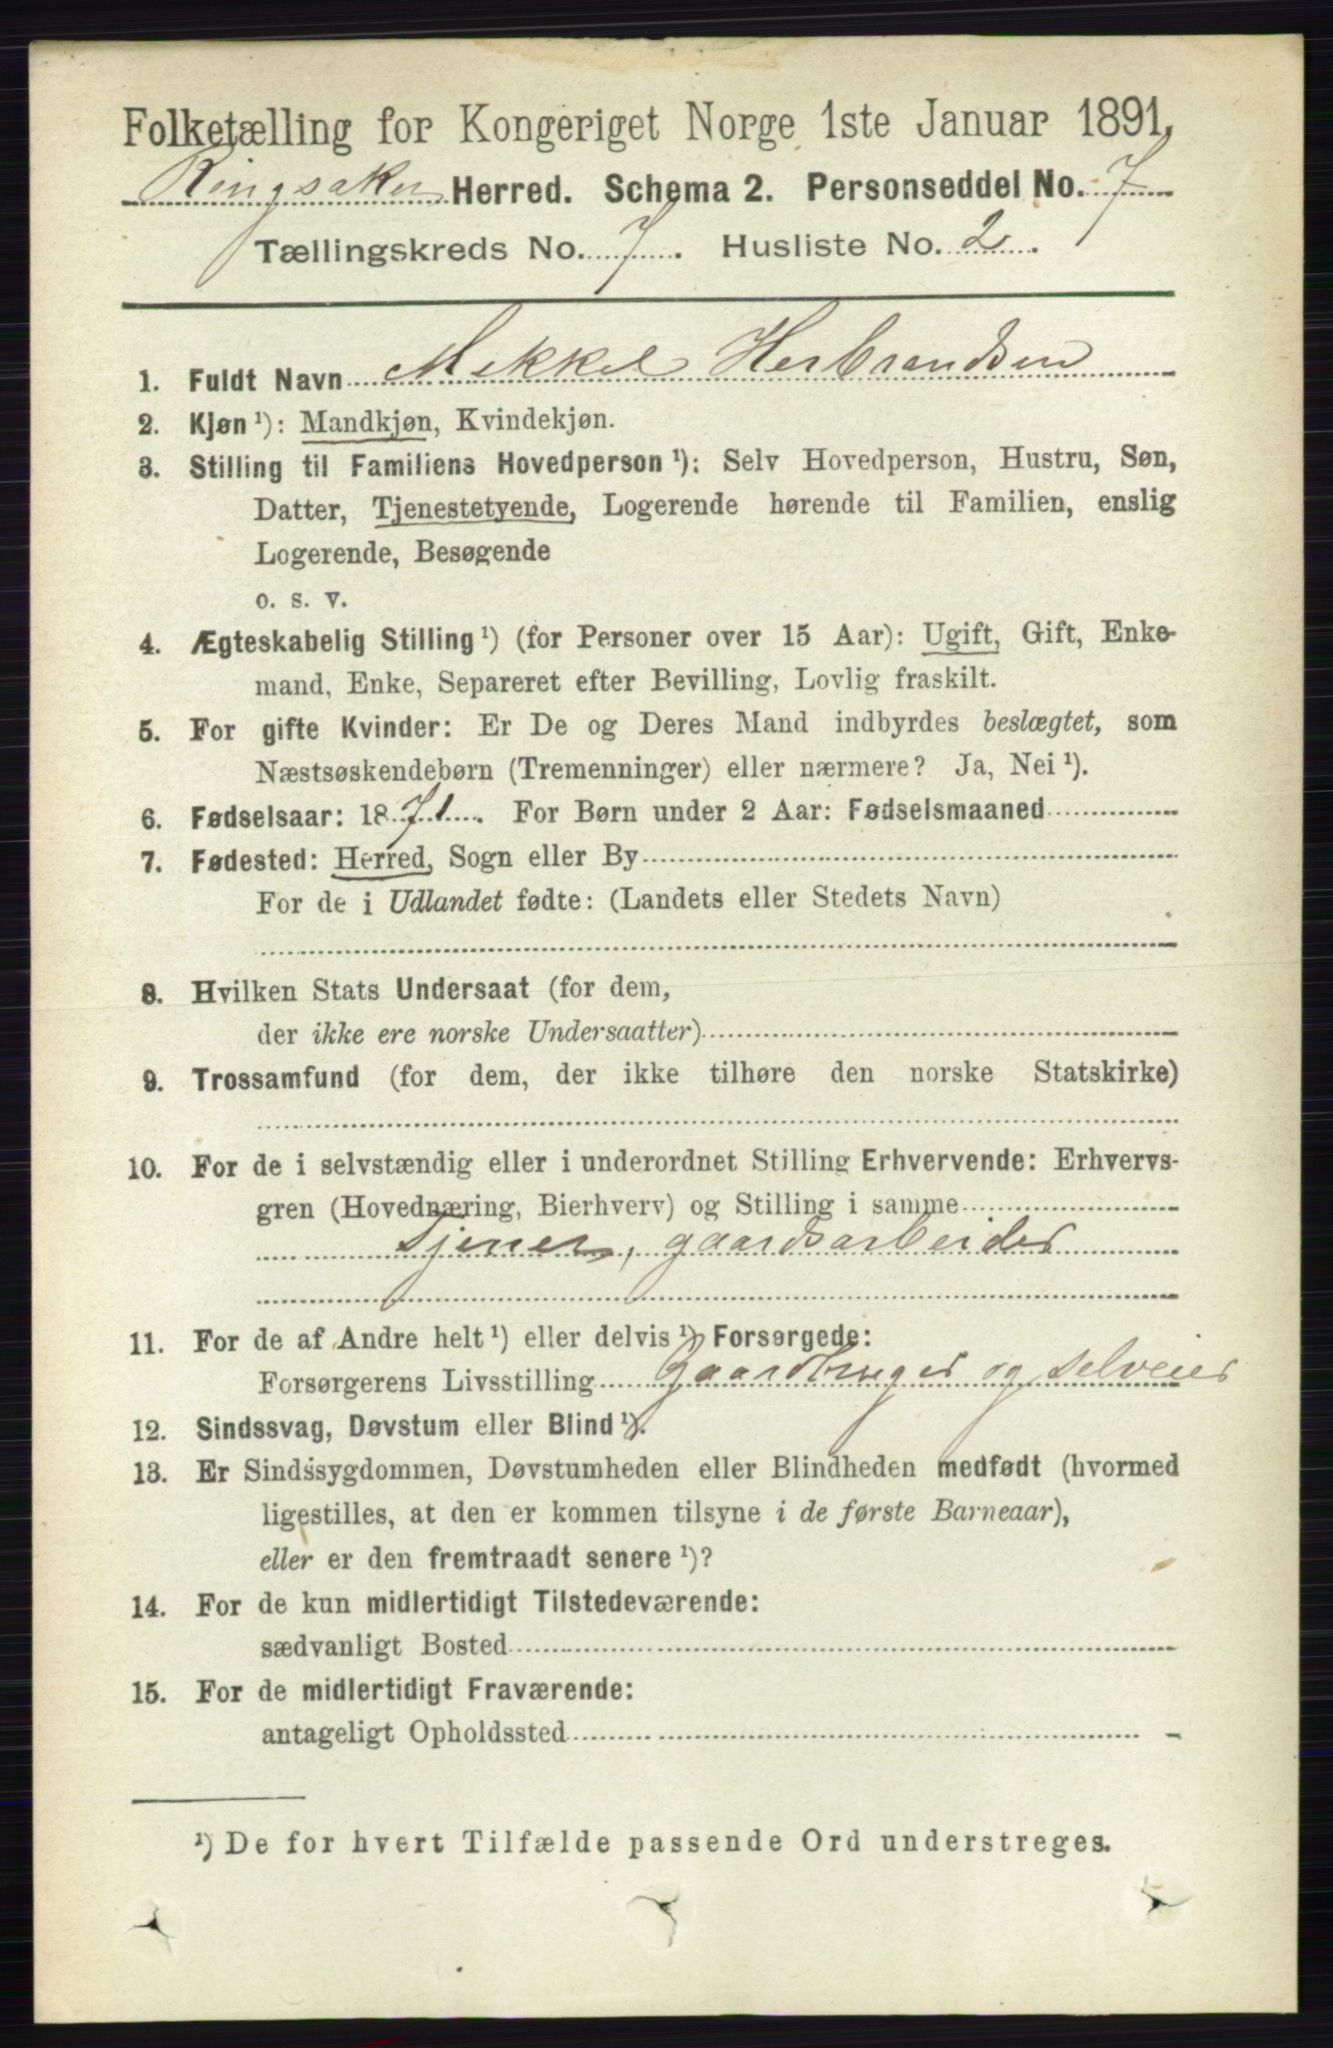 Folketælling for Kongeriget Norge 1ste Januar 1891.
Ringsaker Herred. Schema 2. Personseddel No. 7
Tællingskreds No. 7. Husliste No. 2.
1. Fuldt Navn Mekkel Herbrandsen
2. Kjøn ¹): Mandkjøn, Kvindekjøn.
3. Stilling til Familiens Hovedperson ¹): Selv Hovedperson, Hustru, Søn,
Datter, Tjenestetyende, Logerende hørende til Familien, enslig
Logerende, Besøgende
o. s. v.
4. Ægteskabelig Stilling ¹) (for Personer over 15 Aar): Ugift, Gift, Enke-
mand, Enke, Separeret efter Bevilling, Lovlig fraskilt.
5. For gifte Kvinder: Er De og Deres Mand indbyrdes beslægtet, som
Næstsøskendebørn (Tremenninger) eller nærmere? Ja, Nei ¹).
6. Fødselsaar: 1871. For Børn under 2 Aar: Fødselsmaaned
7. Fødested: Herred, Sogn eller By
For de i Udlandet fødte: (Landets eller Stedets Navn)
8. Hvilken Stats Undersaat (for dem,
der ikke ere norske Undersaatter)
9. Trossamfund (for dem, der ikke tilhøre den norske Statskirke)
10. For de i selvstændig eller i underordnet Stilling Erhvervende: Erhvervs-
gren (Hovednæring, Bierhverv) og Stilling i samme
Tjener, gaardsarbeider
11. For de af Andre helt ¹) eller delvis ¹) Forsørgede:
Forsørgerens Livsstilling Gaardbruger og selveier
12. Sindssvag, Døvstum eller Blind ¹).
13. Er Sindssygdommen, Døvstumheden eller Blindheden medfødt (hvormed
ligestilles, at den er kommen tilsyne i de første Barneaar),
eller er den fremtraadt senere ¹)?
14. For de kun midlertidigt Tilstedeværende:
sædvanligt Bosted
15. For de midlertidigt Fraværende:
antageligt Opholdssted
¹) De for hvert Tilfælde passende Ord understreges.